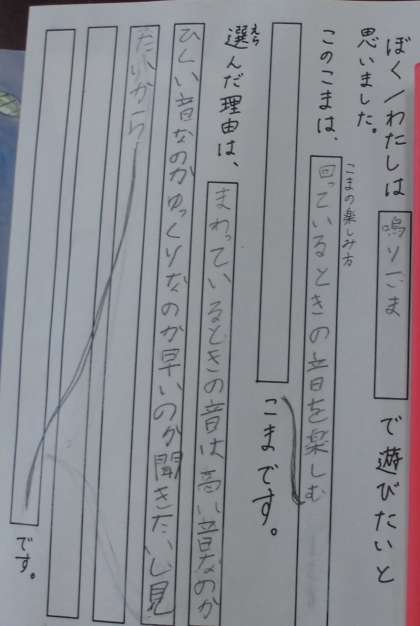 ぼく/わたしは 鳴りごま で遊びたいと
思いました。
こまの楽しみ方
このこまは、回っているときの音を楽しむ
こまです。
えら
選んだ理由は、まわっているときの音は高い音なのか
ひくい音なのかゆっくりなのか早いのか聞きたいし見
たいから
です。